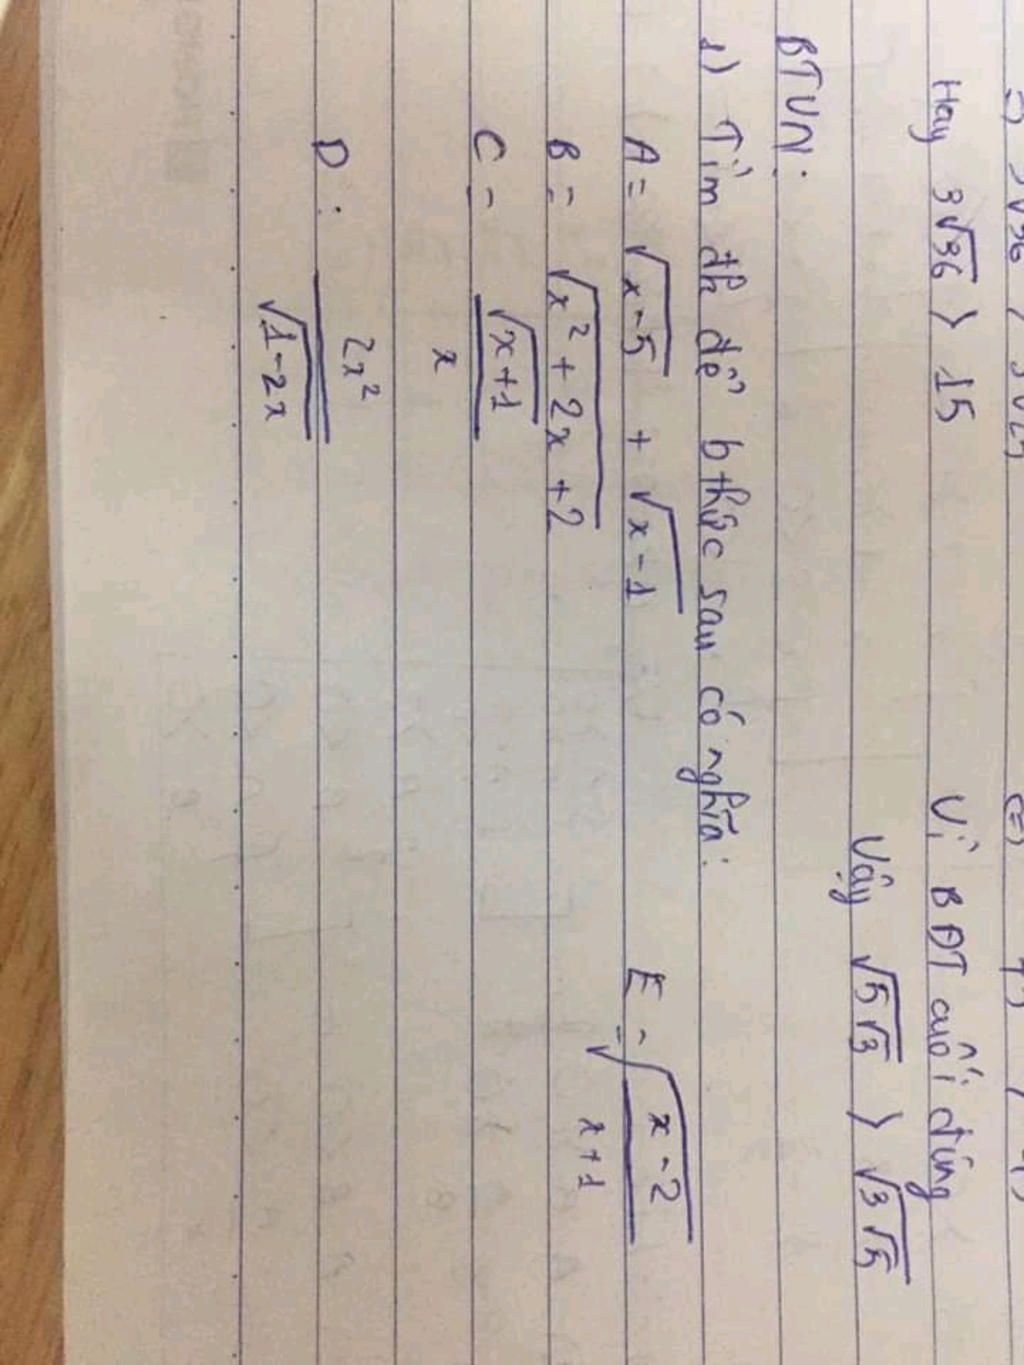 Hay 3√36 > 15
Vì BĐT cuối đúng
Vậy √5√3 > √3√5
BTVN:
1) Tìm đk để bthức sau có nghĩa:
A = √x-5 + √x-1
E = √x-2
x+1
B = √x² + 2x + 2
C = √x+1
x
D: 2x²
√1-2x